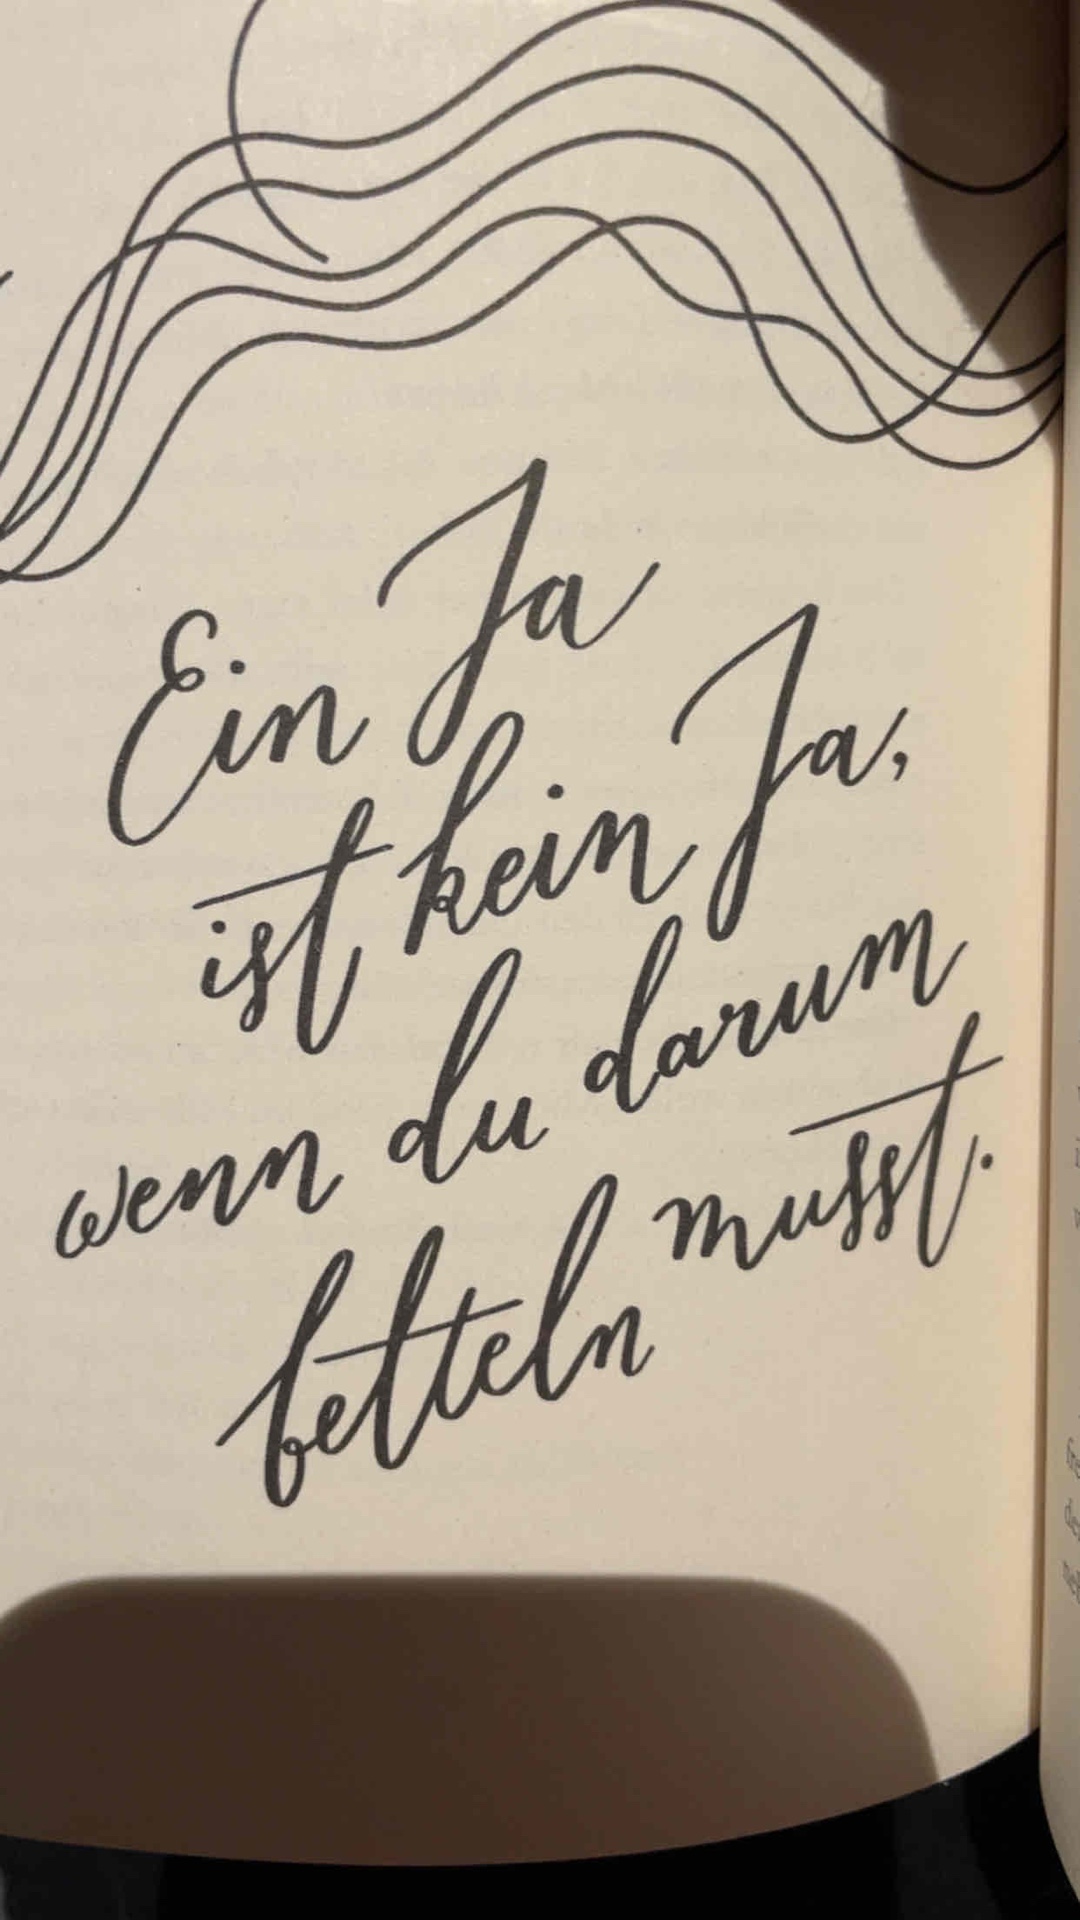 Ein Ja
ist kein Ja,
wenn du darum
betteln musst.